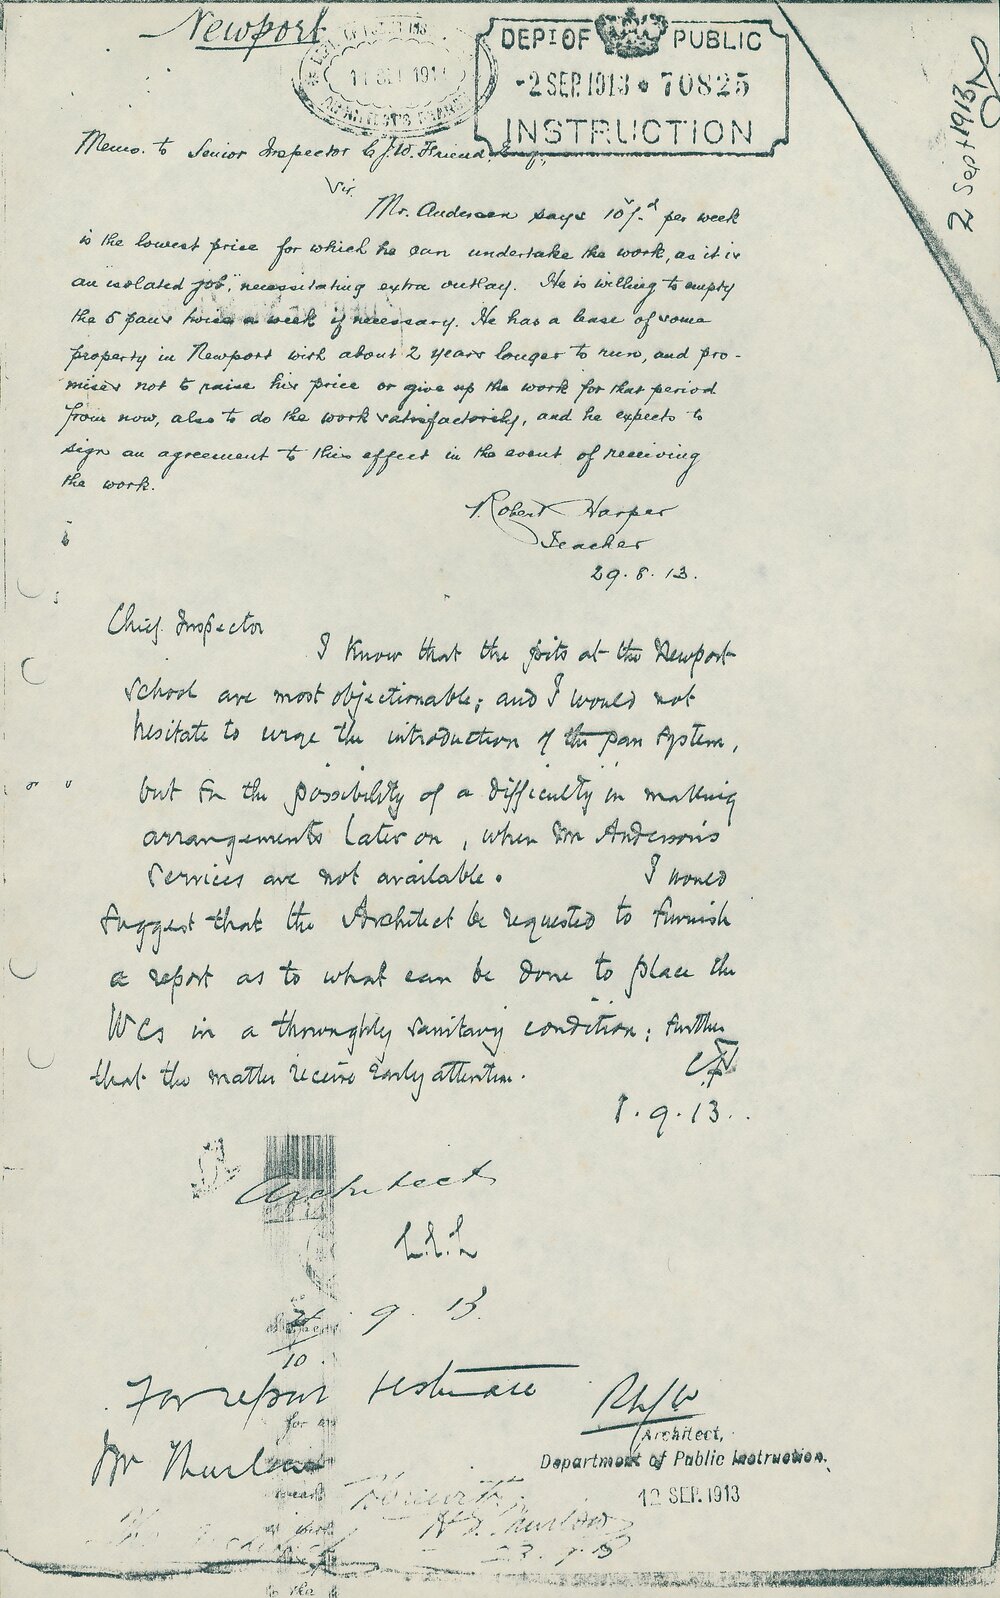 Newport
DEPT OF PUBLIC
-2 SEP. 1913 70825
INSTRUCTION
11 SEP 191
2 Sept 1913
Memo. to Senior Inspector C. J. W. Friend Esq.
Sir,
Mr. Anderson says 10/- per week
is the lowest price for which he can undertake the work, as it is
an "isolated job", necessitating extra outlay. He is willing to empty
the 5 pans twice a week if necessary. He has a lease of some
property in Newport with about 2 years longer to run, and pro-
mises not to raise his price or give up the work for that period
from now, also to do the work satisfactorily, and he expects to
sign an agreement to this effect in the event of receiving
the work.
Robert Harper
Teacher
29.8.13.
Chief Inspector
I know that the pits at the Newport
School are most objectionable; and I would not
hesitate to urge the introduction of the pan system,
but for the possibility of a difficulty in making
arrangements later on, when Mr Anderson's
services are not available. I would
suggest that the Architect be requested to furnish
a report as to what can be done to place the
WCs in a thoroughly sanitary condition; further
that the matter receive early attention.
1.9.13.
Architect
9 13
10
For report & estimate
Architect,
Department of Public Instruction.
12 SEP. 1913
Mr Thurlow
Thurlow